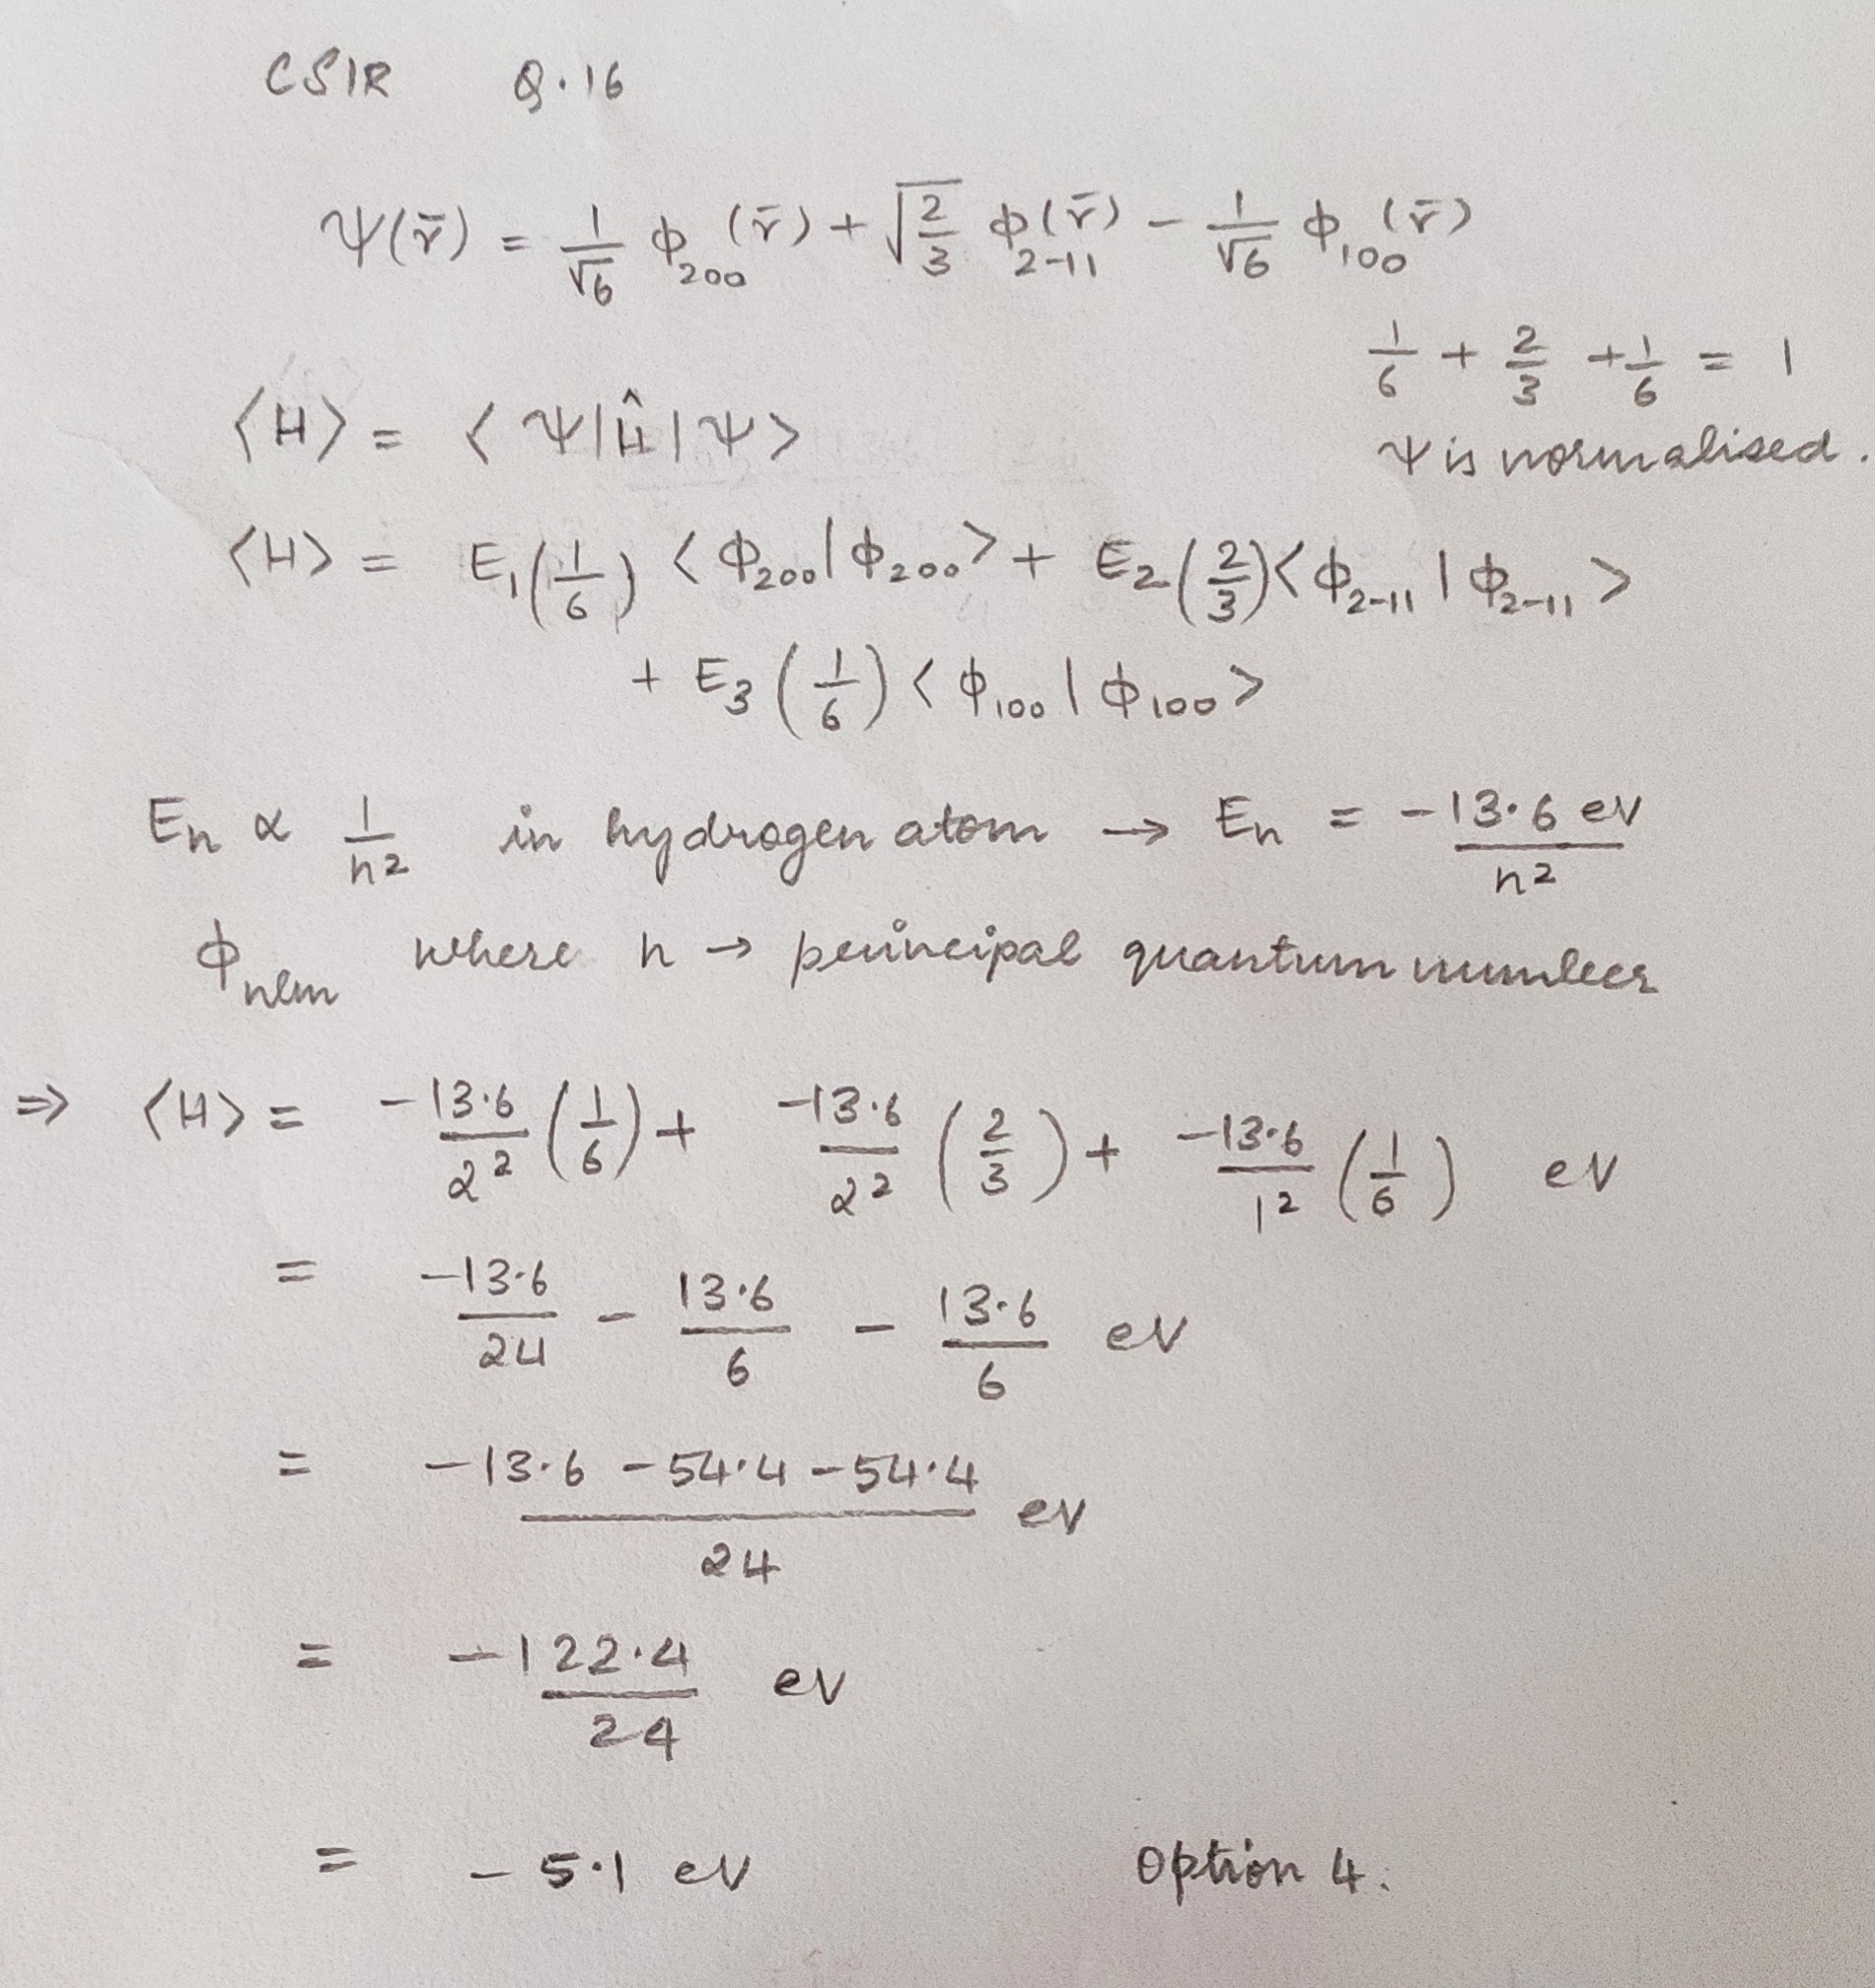 CSIR Q.16
Ψ(r̄) = 1/√6 ϕ₂₀₀(r̄) + √(2/3) ϕ₂₋₁₁(r̄) − 1/√6 ϕ₁₀₀(r̄)
1/6 + 2/3 + 1/6 = 1
⟨H⟩ = ⟨Ψ|Ĥ|Ψ⟩
Ψ is normalised.
⟨H⟩ = E₁(1/6) ⟨ϕ₂₀₀|ϕ₂₀₀⟩ + E₂(2/3)⟨ϕ₂₋₁₁|ϕ₂₋₁₁⟩
+ E₃(1/6)⟨ϕ₁₀₀|ϕ₁₀₀⟩
Eₙ ∝ 1/n² in hydrogen atom → Eₙ = −13.6 eV/n²
ϕₙₗₘ where n → principal quantum number
⇒ ⟨H⟩ = −13.6/2² (1/6) + −13.6/2² (2/3) + −13.6/1² (1/6) eV
= −13.6/24 − 13.6/6 − 13.6/6 eV
= −13.6 − 54.4 − 54.4/24 eV
= −122.4/24 eV
= −5.1 eV Option 4.